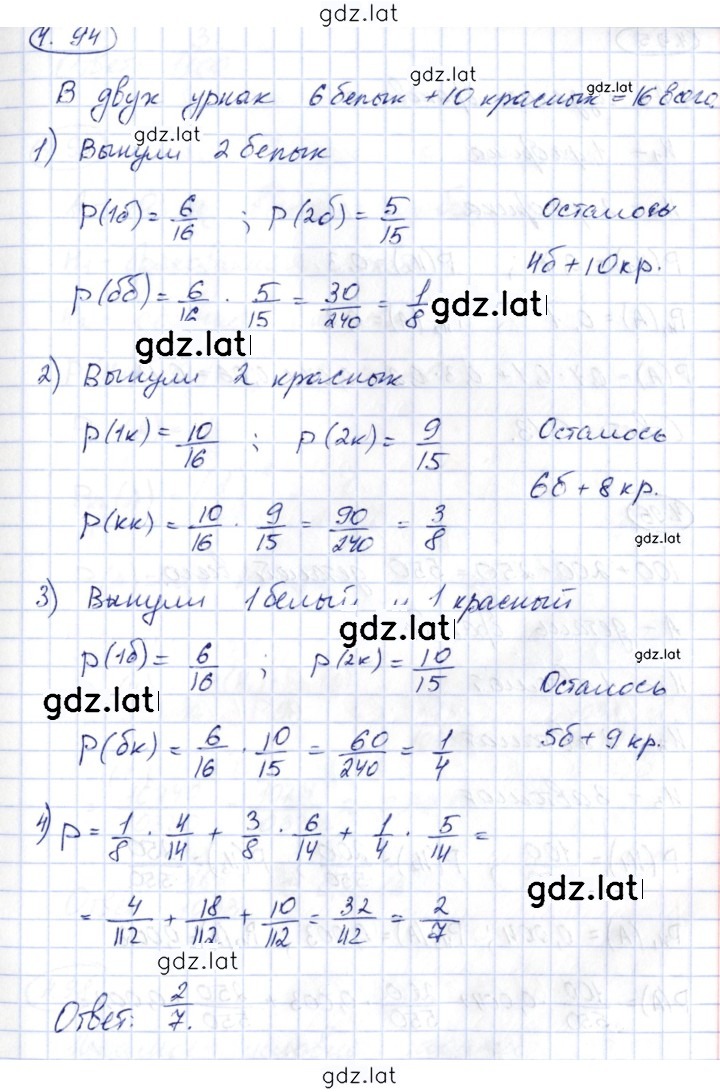 gdz.lat
4. 94
gdz.lat
gdz.lat
В двух урнах 6 белых + 10 красных = 16 всего.
gdz.lat
1) Вынули 2 белых
P(1б) = 6/16 ; P(2б) = 5/15
Осталось
4б + 10 кр.
P(бб) = 6/16 · 5/15 = 30/240 = 1/8
gdz.lat
gdz.lat
2) Вынули 2 красных
P(1к) = 10/16 ; P(2к) = 9/15
Осталось
6б + 8 кр.
P(кк) = 10/16 · 9/15 = 90/240 = 3/8
gdz.lat
3) Вынули 1 белый и 1 красный
gdz.lat
P(1б) = 6/16 ; P(2к) = 10/15
gdz.lat
gdz.lat
Осталось
5б + 9 кр.
P(бк) = 6/16 · 10/15 = 60/240 = 1/4
4) P = 1/8 · 4/14 + 3/8 · 6/14 + 1/4 · 5/14 =
gdz.lat
= 4/112 + 18/112 + 10/112 = 32/42 = 2/7
gdz.lat
Ответ: 2/7.
gdz.lat